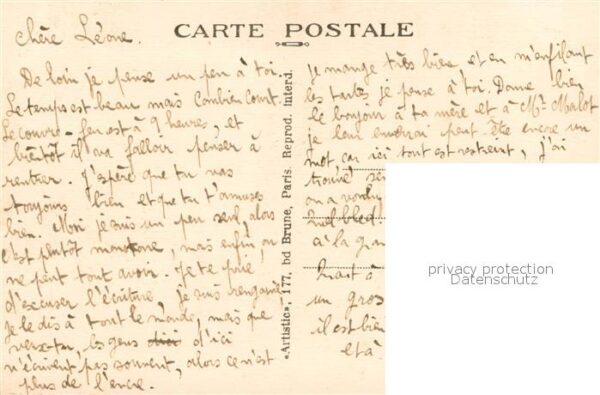 CARTE POSTALE
chère Léone.
De loin je pense un peu à toi.
Le temps est beau mais Combien Court.
Le couvre-feu est à 9 heures, et
bientôt il va falloir penser à
rentrer. J'espère que tu vas
toujours bien et que tu t'amuses
bien. Moi je suis un peu seul, alors
c'est plutôt monotone, mais enfin on
ne peut tout avoir. Je te prie,
d'excuser l'écriture, je suis
je le dis à tout le monde, mais que
veux-tu, les gens d'ici
n'écrivent pas souvent, alors ce n'est
plus de l'encre.
«Artistic», 177, bd Brune, Paris. Reprod. Interd.
Je mange très bien et en m'enfilant
les tartes je pense à toi. Donne bien
le bonjour à ta mère et à Mr Malot
je leur enverrai peut être encore un
mot car ici tout est restreint, j'ai
trouvé
on a
à la
un gros
il est bien
et à
privacy protection
Datenschutz